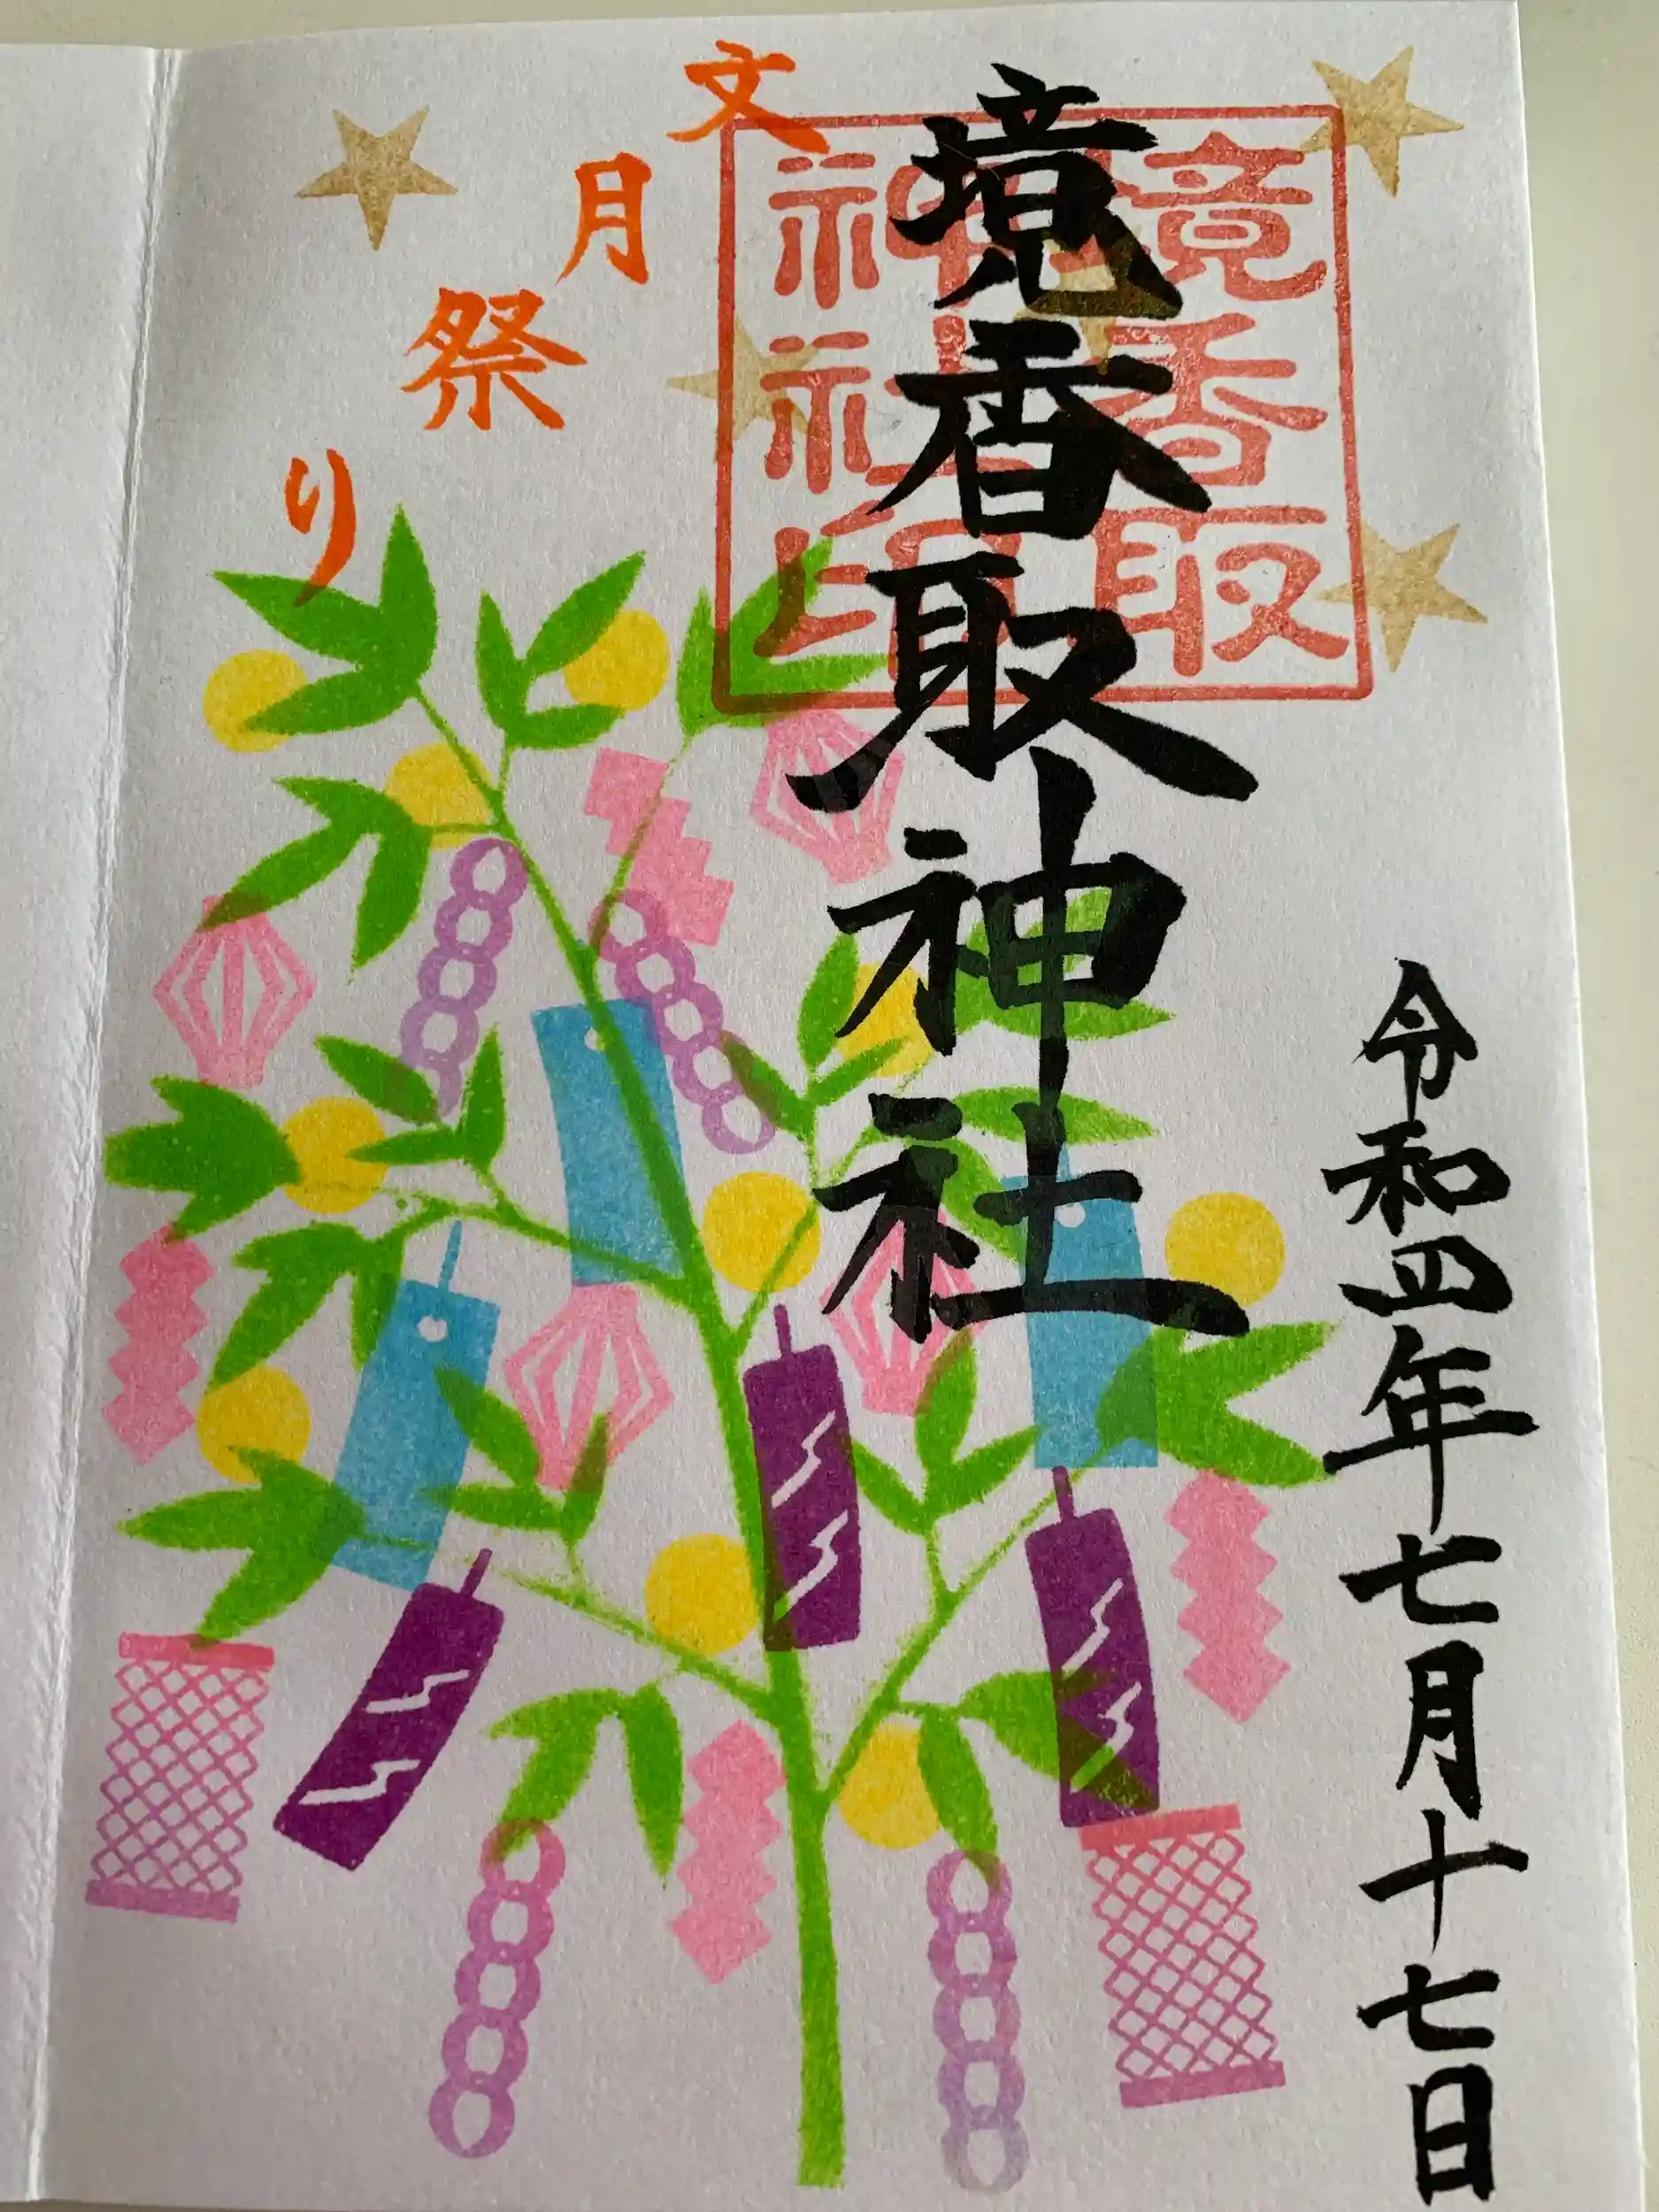 令和四年七月十七日
境香取神社
境香取
神社印
文月祭り